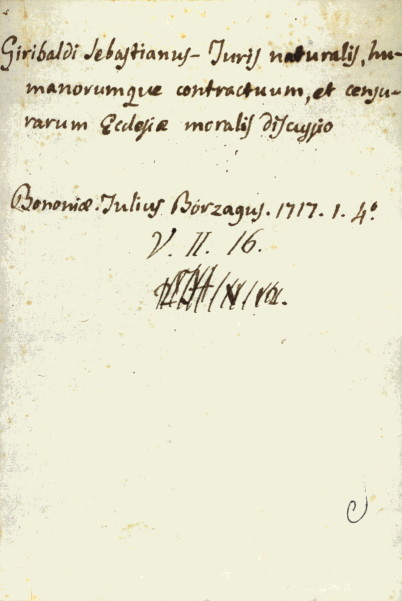 Giribaldi Sebastianus - Juris naturalis, hu-
manorumque contractuum, et censu-
rarum Ecclesiæ moralis discussio
Bononiæ. Julius Borzagus. 1717. 1. 4°
V. II. 16.